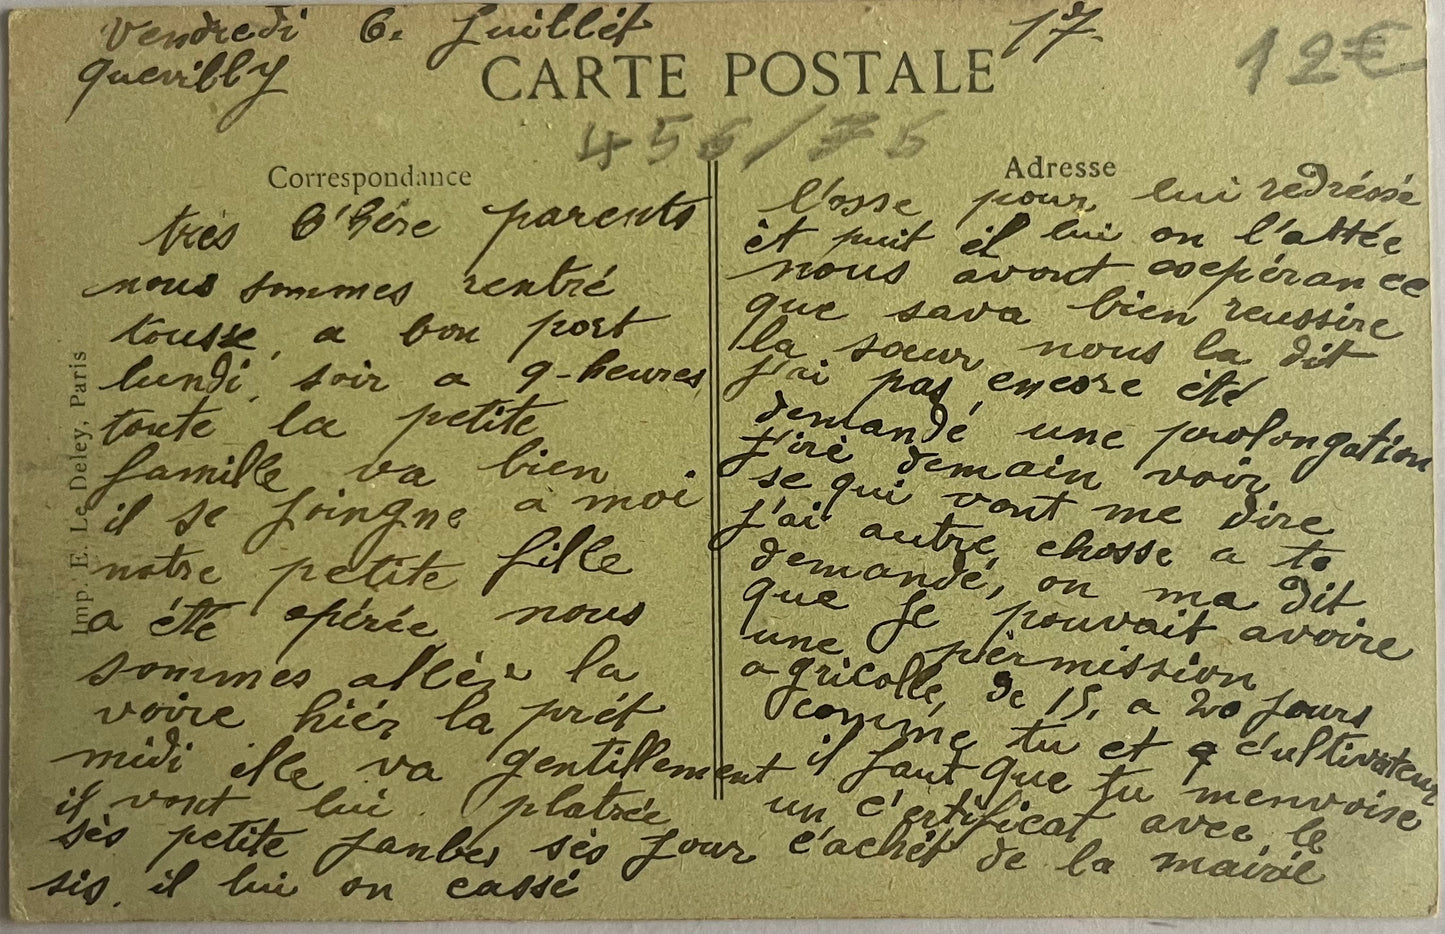 Vendredi 6. Juillet 17.
Quevilly
12€
CARTE POSTALE
Correspondance
très C'hère parents
nous sommes rentré
tousse, a bon port
lundi, soir a 9-heures
toute la petite
famille va bien
il se joingne a moi
notre petite fille
a été opérée, nous
sommes allèr la
voire hiér la prét
midi elle va gentillement
il vont lui platrée
sès petite janbes sès jour
sis, il lui on cassé
Adresse
l'osse pour lui redréssé
èt puit il lui on l'attée
nous avont éséperance
que sava bien reussire
la sœur nous la dit
j'ai pas encore été
demandé une prolongation
j'iré demain voir
se qui vont me dire
j'ai autre chosse a te
demandé, on ma dit
que je pouvait avoire
une pèrmission
agricolle, de 15, a 20 jours
comme tu et c'ultivateur
il faut que tu menvoise
un c'ertificat avec le
c'achét de la mairie
Imp. E. Le Deley, Paris